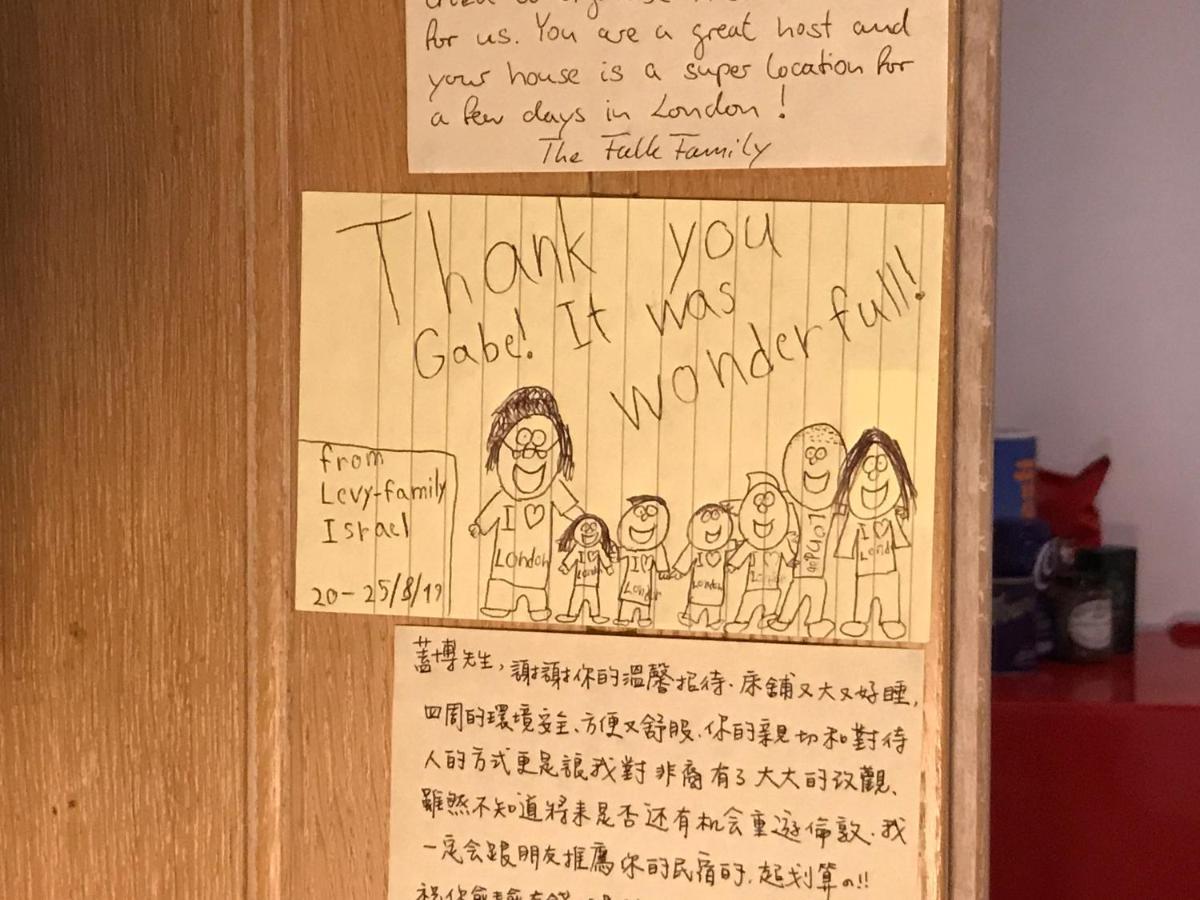 for us. You are a great host and
your house is a super location for
a few days in London!
The Family
Thank you
Gabe! It was
wonderfull!
from
Levy-family
Israel
20-25/8/17
I ♡
London
I ♡
London
I ♡
London
I ♡
London
London
London
I ♡
Lond
蓋博先生，謝謝你的溫馨招待、床鋪又大又好睡，
四周的環境安全、方便又舒服、你的親切和對待
人的方式更是讓我對非裔有了大大的改觀、
雖然不知道將来是否还有机会重遊倫敦、我
一定会跟朋友推薦你的民宿的，超划算の!!